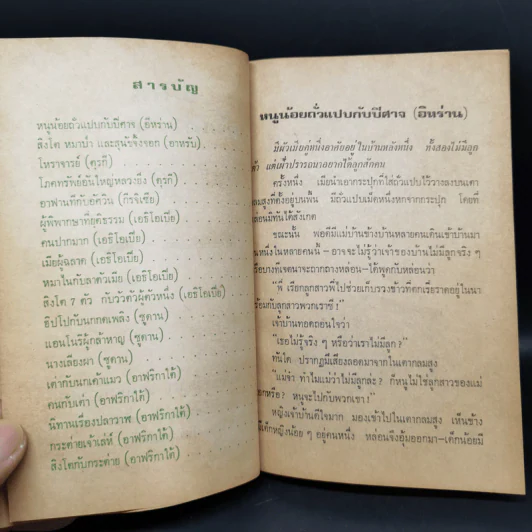 สารบัญ
หนูน้อยถั่วแปบกับปีศาจ (อิหร่าน)
สิงโต หมาป่า และสุนัขจิ้งจอก (อาหรับ)
โหราจารย์ (ตุรกี)
โภคทรัพย์อันใหญ่หลวงยิ่ง (ตุรกี)
อาฟานที่กับอัศวิน
ผู้พิพากษาที่ยุติธรรม (เอธิโอเปีย)
คนปากมาก (เอธิโอเปีย)
เมียผู้ฉลาด (เอธิโอเปีย)
หมาไนกับลาตัวเมีย (เอธิโอเปีย)
สิงโต 7 ตัว กับวัวตัวผู้ตัวหนึ่ง (เอธิโอเปีย)
ฮิปโปกับนกกดเพลิง (ซูดาน)
แอนโนริผู้กล้าหาญ (ซูดาน)
นางเลียงผา (ซูดาน)
เต่ากับนกเค้าแมว (อาฟริกาใต้)
คนกับเต่า (อาฟริกาใต้)
นิทานเรื่องปลาวาฬ (อาฟริกาใต้)
กระต่ายเจ้าเล่ห์ (อาฟริกาใต้)
สิงโตกับกระต่าย (อาฟริกาใต้)
หนูน้อยถั่วแปบกับปีศาจ (อิหร่าน)
มีผัวเมียคู่หนึ่งอาศัยอยู่ในบ้านหลังหนึ่ง ทั้งสองไม่มีลูก
แต่เฝ้าปรารถนาอยากให้ลูกสักคน
ครั้งหนึ่ง เมียนำเอากระปุกที่ใส่ถั่วแปบไว้วางลงบนเตา
มสูงที่ตั้งอยู่บนพื้น มีถั่วแปบเม็ดหนึ่งหกจากกระปุก โดยที่
หล่อนมิทันได้สังเกต
ขณะนั้น พอดีมีแม่บ้านข้างบ้านหลายคนเดินเข้าบ้านมา
หนึ่งในหลายคนนั้น—อาจจะไม่รู้ว่าเจ้าของบ้านไม่มีลูกจริง ๆ
เรียบบางที่เจตนาจะถากถางหล่อน—ได้พูดกับหล่อนว่า
"พี่ เรียกลูกสาวพี่ไปช่วยเก็บรวงข้าวที่ตกเรี่ยราดอยู่ในนา
ร้อมกับลูกสาวพวกเราซี !"
เจ้าบ้านทอดถอนใจว่า
"เธอไม่รู้จริง ๆ หรือว่าเราไม่มีลูก ?"
ทันใด ปรากฏมีเสียงลอดมาจากในเตากลมสูง
"แม่จ๋า ทำไมแม่ว่าไม่มีลูกล่ะ ? ก็หนูไม่ใช่ลูกสาวของแม่
อกหรือ ? หนูจะไปกับพวกเขา !"
หญิงเจ้าบ้านดีใจมาก มองเข้าไปในเตากลมสูง เห็นข้าง
มีเด็กหญิงน้อย ๆ อยู่คนหนึ่ง หล่อนจึงอุ้มออกมา—เด็กน้อยมี